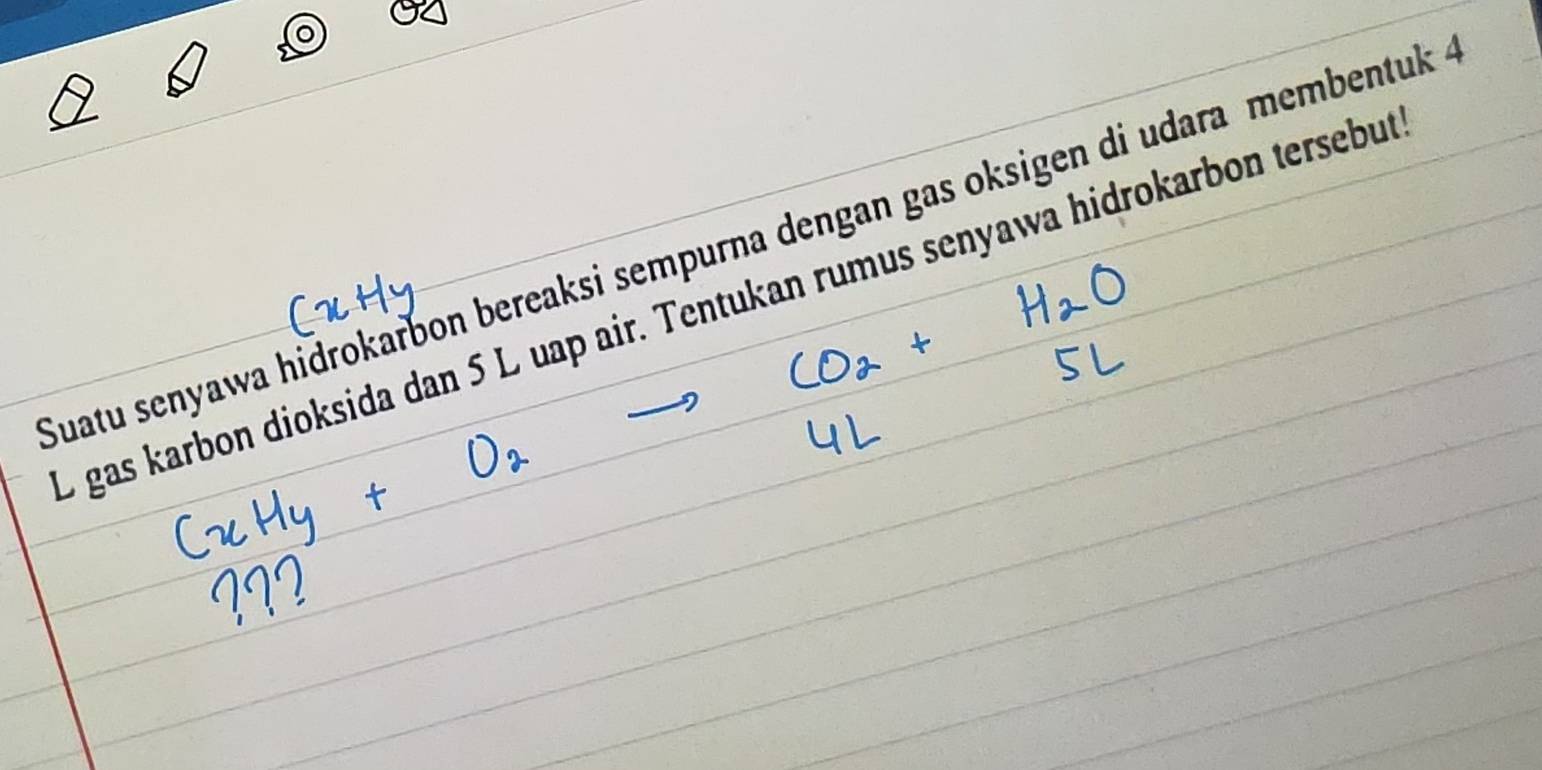 CxHy
Suatu senyawa hidrokarbon bereaksi sempurna dengan gas oksigen di udara membentuk 4
L gas karbon dioksida dan 5 L uap air. Tentukan rumus senyawa hidrokarbon tersebut!
CxHy + O₂ → CO₂ + H₂O
??? 4L 5L